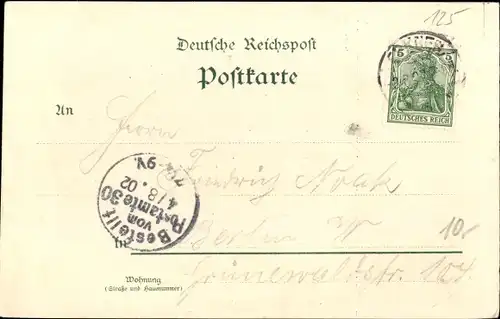 125
Deutsche Reichspost
Postkarte
5
DEUTSCHES REICH
An
Herrn
Friedrich
Bestellt
vom
Postamte 30
4/8.02
7¼-9V.
in
Berlin W 10
Grünewaldstr. 104.
Wohnung
(Straße und Hausnummer)